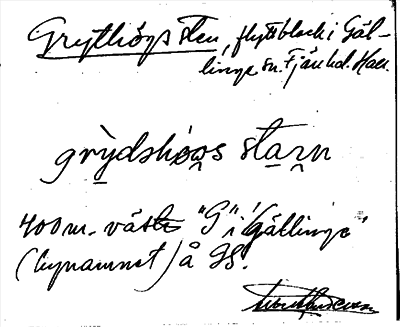 Grythögsten, flyttblock i Gäl-
linge sn. Fjäre hd. Hall.
grỳdshö̀gs sta̱ṟn
400 m. väster "G" i "Gällinge"
(bynamnet) å GS.